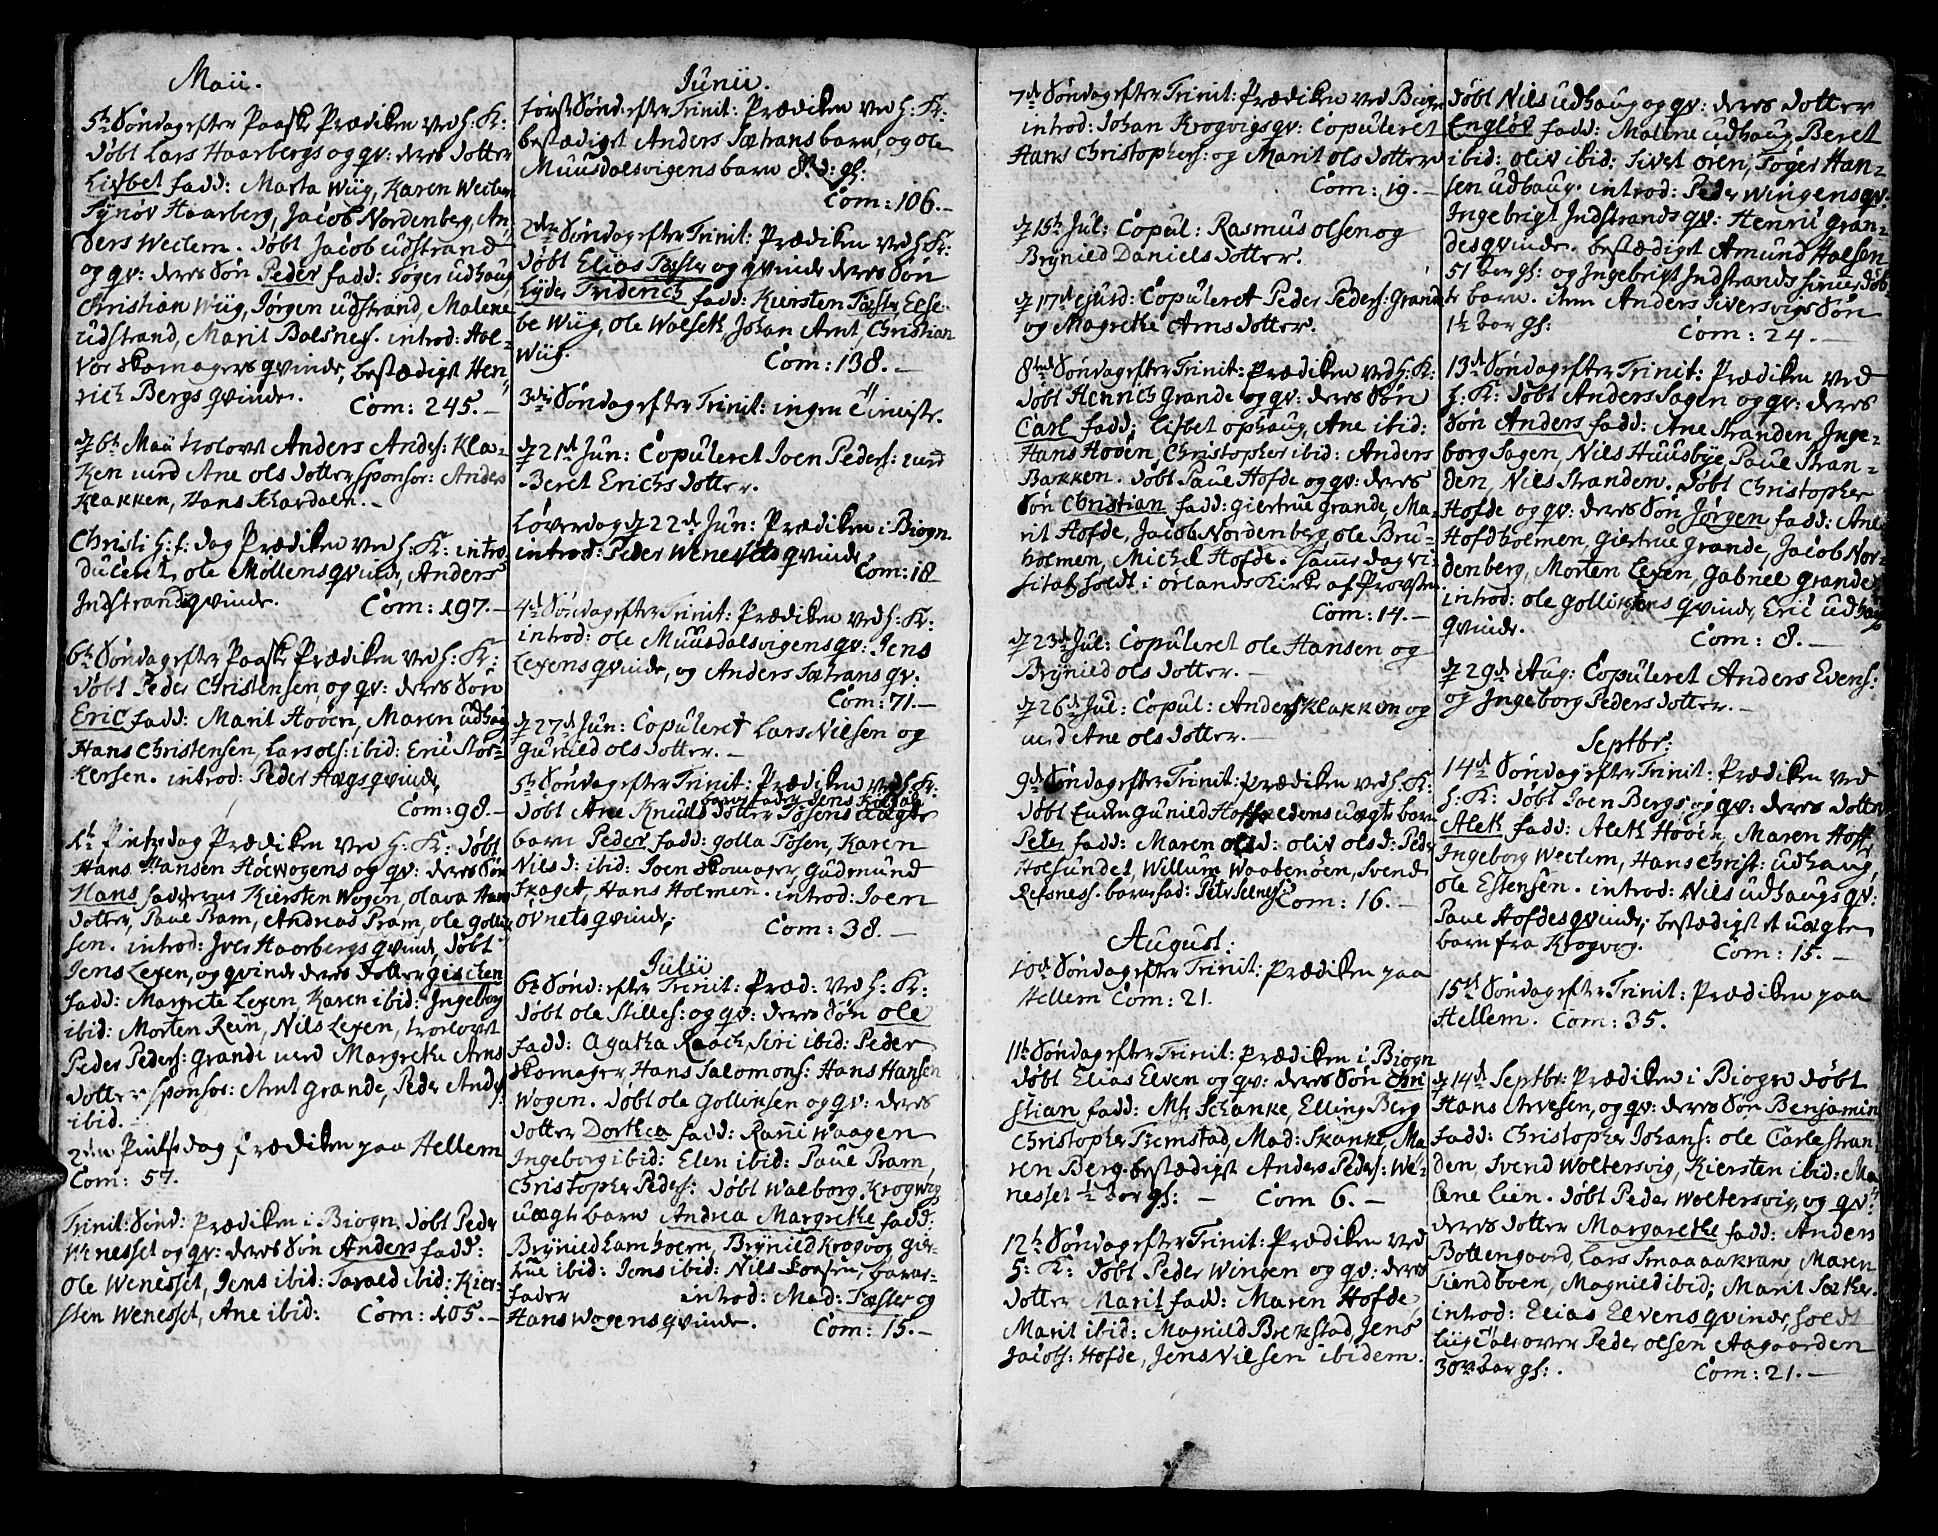 Maii.
5te Søndag efter Paaske Prædiken ved H: K:
døbt Lars Haarbergs og qv: deres dotter
Lisbet fadd: Marta Wiig, Karen Weclem
Synøv Haarberg, Jacob Nordenberg, An-
ders Weclem. døbt Jacob udstrand
og qv: deres Søn Peder fadd: Tøger udhaug
Christian Wiig, Jørgen udstrand, Malene
udstrand, Marit Balsnes. introd: Hal-
vor Skomagers qvinde, bestædiget Hen-
rich Bergs qvinde. Com: 245.-
d 6t Maii trolovt Anders Anders: Klak-
ken med Ane ols dotter sponsor: Anders
Klakken, Hans Schardaln.-
Christi H: f: dag Prædiken ved H: K: intro
ducent ole Mollens qvinde, Anders
Indstrands qvinde. Com: 197.-
6te Søndag efter Paaske Prædiken ved H: K:
døbt Peder Christensen, og qv: deres Søn
Eric fadd: Marit Hoøen, Maren udhaug
Hans Christensen, Lars ols: ibid: Eric Stor-
kersen. introd: Peder Haegs qvinde
Com: 98.-
1te Pintzdag Prædiken ved H: K: døbt
Hans Hansen Høewogens og qv: deres Søn
Hans fadderne Kiersten Wogen, olava Hans
dotter, Paul Pram, Andreas Pram, ole Gollin
sen. introd: Iver Haarbergs qvinde, døbt
Jens Lexen, og qvinde deres dotter Gischen
fadd: Margrete Lexen, Karen ibid: Ingeborg
ibid: Morten Rein, Nils Lexen, trolovet
Peder Peders: Grande med Margrethe Arns
dotter sponsor: Arnt Grande, Peder Anders:
ibid.-
2den Pintzdag Prædiken paa Hellem
Com: 57.
Trinit: Sønd: Prædiken i Biogn, døbt Peder
Wenesset og qv: deres Søn Anders fadd:
Ole Wenesset, Jens ibid: Tarald ibid: Kier-
sten Wenesset, Ane ibid: Com: 105.-
Junii.
først Sønd: efter Trinit: Prædiken ved H: K:
bestædiget Anders Sætrans barn, og ole
Muusdalsvigens barn 8 d: gl:
Com: 106.-
2den Søndag efter Trinit: Prædiken ved H: K:
døbt Elias Fæster og qvinde deres Søn
Lyder Friderich fadd: Kiersten Fæster, Else-
be Wiig, ole Wolseth, Johan Arnt, Christian
Wiig. Com: 138.-
3die Søndag efter Trinit: ingen Tieniste.
d 21de Jun: Copuleret Joen Peders: med
Beret Erichs dotter.
Løverdag d 22de Jun: Prædiken i Biogn
introd: Peder Wenesets qvinde
Com: 18
4de Søndag efter Trinit: Prædiken ved H: K:
introd: ole Muusdalsvigens qv: Jens
Lexens qvinde, og Anders Sætrans qv:
Com: 71.-
d 27de Jun: Copuleret Lars Nilsen og
Gunild ols dotter.-
5te Søndag efter Trinit: Prædiken ved H: K:
døbt Ane Knuds dotter Tosens uægte
barn Peder fadd: Golla Tosen, Karen
Nilsd: ibid: Joen Skomager, Gudmund
Skaget, Hans Holmen. introd: Joen
øvnets qvinde, Com: 38.-
Julii
6te Sønd: efter Trinit: Præd: ved H: K:
døbt ole Stilles: og qv: deres Søn ole
fadd: Agatha Raach, Siri ibid: Peder
Skomager, Hans Salomons: Hans Hansen
Wogen. døbt ole Gollinsen og qv: deres
dotter Dorthea fadd: Ranni Waagen
Ingeborg ibid: Elen ibid: Paul Pram,
Christopher Peders: døbt Walborg Krogwig
uægte barn Andrea Margrethe fadd:
Brynild Lamhoern, Brynild Krogvog Gier-
true ibid: Jens ibid: Nils Koosen, barne-
fader introd: Mad: Fæster og
Hans Wogens qvinde. Com: 15.-
7de Søndag efter Trinit: Prædiken ved Biogn
introd: Johan Krogvigs qv: Copuleret
Hans Christophers: og Marit ols dotter
Com: 19.-
d 15de Jul: Copul: Rasmus olsen og
Brynild Daniels dotter.
d 17de ejusd: Copuleret Peder Peders: Grande
og Magrethe Arns dotter.
8de Søndag efter Trinit: Prædiken ved H: K:
døbt Henrich Grande og qv: deres Søn
Carl fadd: Lisbet ophaug, Ane ibid:
Hans Hoøen, Christopher ibid: Anders
Bakken. døbt Paul Hofde og qv: deres
Søn Christian fadd: Giertrue Grande, Ma-
rit Hofde, Jacob Nordenberg ole Bru-
holmen, Michel Hofde. Samme dag vi-
sitatz holdt i Ørlands Kirke af Provsten
Com: 14.-
d 23de Jul: Copuleret ole Hansen og
Brynild ols dotter.-
d 26de Jul: Copul: Anders Klakken og
med Ane ols dotter.-
9de Søndag efter Trinit: Prædiken ved H: K:
døbt Gunild uægte barn
Peter fadd: Maren olsd: oliv olsd: Peder
Holsundet, Willum Waabenøen, Svend
Refsnes. barnefad: Petr Selnes Com: 16.-
August:
10de Søndag efter Trinit: Prædiken paa
Hellem Com: 21.
11te Søndag efter Trinit: Prædiken i Biogn
døbt Elias Elven og qv: deres Søn Chri
stian fadd: Mr. Schanke, Elling Berg
Christopher Fremstad, Mad: Skanke, Ma-
ren Berg. bestædiget Anders Peders: We-
nesset 1/2 aar gl: - Com 6.-
12te Søndag efter Trinit: Prædiken ved
H: K: døbt Peder Winsen og qv: deres
dotter Marit fadd: Maren Hofde,
Marit ibid: Magnild Brekstad, Jens
Jacobs: Hofde, Jens Nilsen ibidem.
døbt Nils udhaug og qv: deres dotter
Engløv fadd: Malene udhaug, Beret
ibid: oliv ibid: Sivet øren, Tøger Han-
sen udhaug. introd: Peder Wingens qv:
Ingebrigt Indstrands qv: Henric Gran-
des qvinde. bestædiget Amund Holsen
51 aar gl: og Ingebrigt Indstrands sinie døb-
te barn. item Anders Siversvigs Søn
1 1/2 aar gl: Com: 24.-
13de Søndag efter Trinit: Prædiken ved
H: K: døbt Anders Sagen og qv: deres
Søn Anders fadd: Ane Stranden, Inge-
borg Sagen, Nils Huusbye, Paul Stran-
den, Nils Stranden. døbt Christopher
Hofde og qv: deres Søn Jørgen fadd: Ane
Hofdholmen, Giertrue Grande, Jacob Nor-
denberg, Morten Lexen, Gabriel Grande,
introd: ole Gollinsens qvinde, Eric udhaugs
qvinde. Com: 8.-
d 29de Aug: Copuleret Anders Evens:
og Ingeborg Peders dotter.-
Septbr:
14de Søndag efter Trinit: Prædiken ved
H: K: døbt Joen Bergs og qv: deres dotter
Aleth fadd: Aleth Hoøen, Maren Hoff
Ingeborg Weclem, Hans Christ: udhaug,
ole Estensen. introd: Nils udhaugs qv:
Paul Hofdes qvinde, bestædiget et uægte
barn fra Krogvog. Com: 15.-
15de Søndag efter Trinit: Prædiken paa
Hellem. Com: 35.
d 14de Septbr: Prædiken i Biogn døbt
Hans Arvesen, og qv: deres Søn Benjamin
fadd: Christopher Johans: ole Carlsstran-
den, Svend Woltersvig, Kiersten ibid: Ma-
lene Lien. døbt Peder Woltersvig, og qv:
deres dotter Margarethe fadd: Anders
Bottengaard, Lars Smaaaakran, Maren
Tiendboen, Magnild ibid; Marit Sæther.
introd: Elias Elvens qvinde, holdt
Liig Tale over Peder olsen Aagaarden
30 aar gl:. Com: 21.-